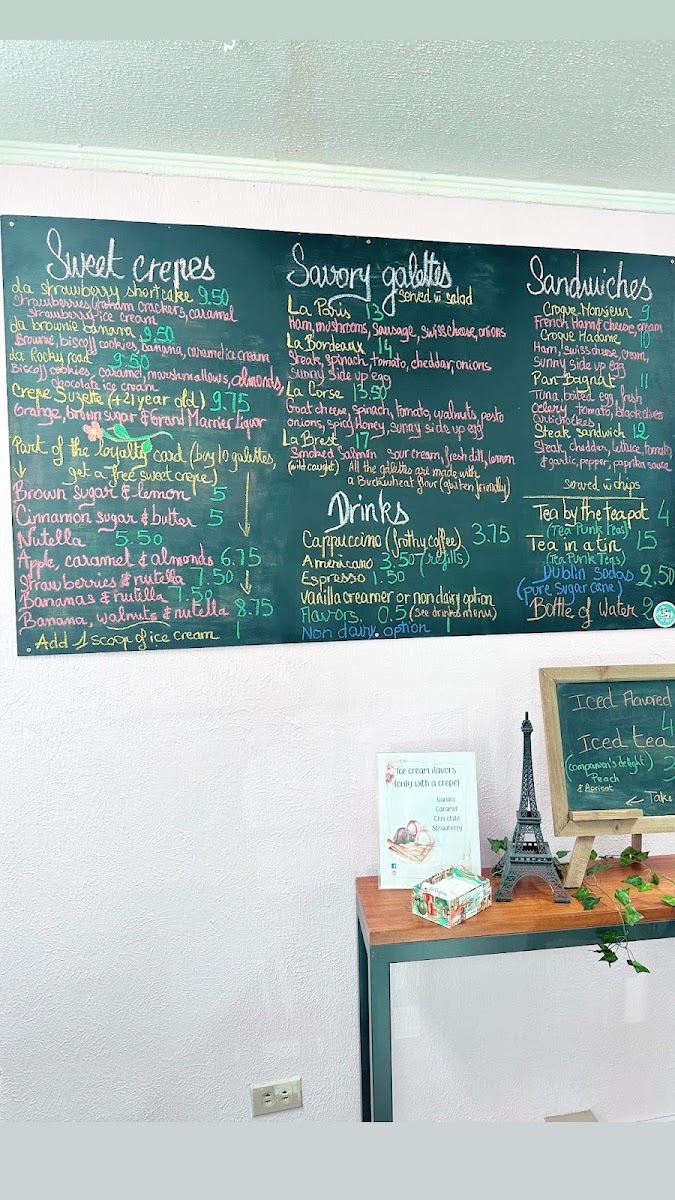 Sweet crepes
La strawberry shortcake 9.50
Strawberries, Graham crackers, caramel
strawberry ice cream
La brownie banana 9.50
Brownie, biscoff cookies, banana, caramel ice cream
La Rocky road 9.50
Biscoff cookies, caramel, marshmallows, almonds,
chocolate ice cream
Crepe Suzette (+21 year old) 9.75
Orange, brown sugar & Grand Marnier liquor
Part of the loyalty card (buy 10 galettes,
get a free sweet crepe)
Brown sugar & lemon 5
Cinnamon sugar & butter 5
Nutella 5.50
Apple, caramel & almonds 6.75
Strawberries & nutella 7.50
Bananas & nutella 7.50
Banana, walnuts & nutella 8.75
Add 1 scoop of ice cream 1
Savory galettes
served w salad
La Paris 13
Ham, mushrooms, sausage, swiss cheese, onions
La Bordeaux 14
Steak, spinach, tomato, cheddar, onions
sunny side up egg
La Corse 13.50
Goat cheese, spinach, tomato, walnuts, pesto
onions, spicy honey, sunny side up egg
La Brest 17
Smoked Salmon sour cream, fresh dill, lemon
(wild caught) All the galettes are made with
a Buckwheat flour (gluten friendly)
Drinks
Cappuccino (frothy coffee) 3.75
Americano 3.50 (refills)
Espresso 1.50
vanilla creamer or non dairy option
Flavors 0.5 (see drinks menu)
Non dairy option
Sandwiches
Croque Monsieur 9
French Ham & cheese, cream
Croque Madame 10
Ham, swiss cheese, cream,
sunny side up egg
Pan Bagnat 11
Tuna, boiled egg, fresh
celery tomato, black olives
artichokes
Steak sandwich 12
Steak, cheddar, lettuce, tomato
& garlic, pepper, paprika sauce
served w chips
Tea by the teapot 4
(Tea Punk Teas)
Tea in a tin 15
(Tea Punk Teas)
Dublin sodas 2.50
(pure sugar cane)
Bottle of water
Iced Flavored
4
Iced tea
(companion's delight) 3
Peach
& Apricot
← Take
Ice cream flavors
(only with a crepe)
Vanilla
Caramel
Chocolate
Strawberry